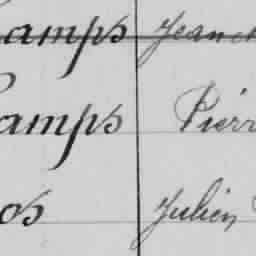 amps Jean
amps Pierr
os Julien